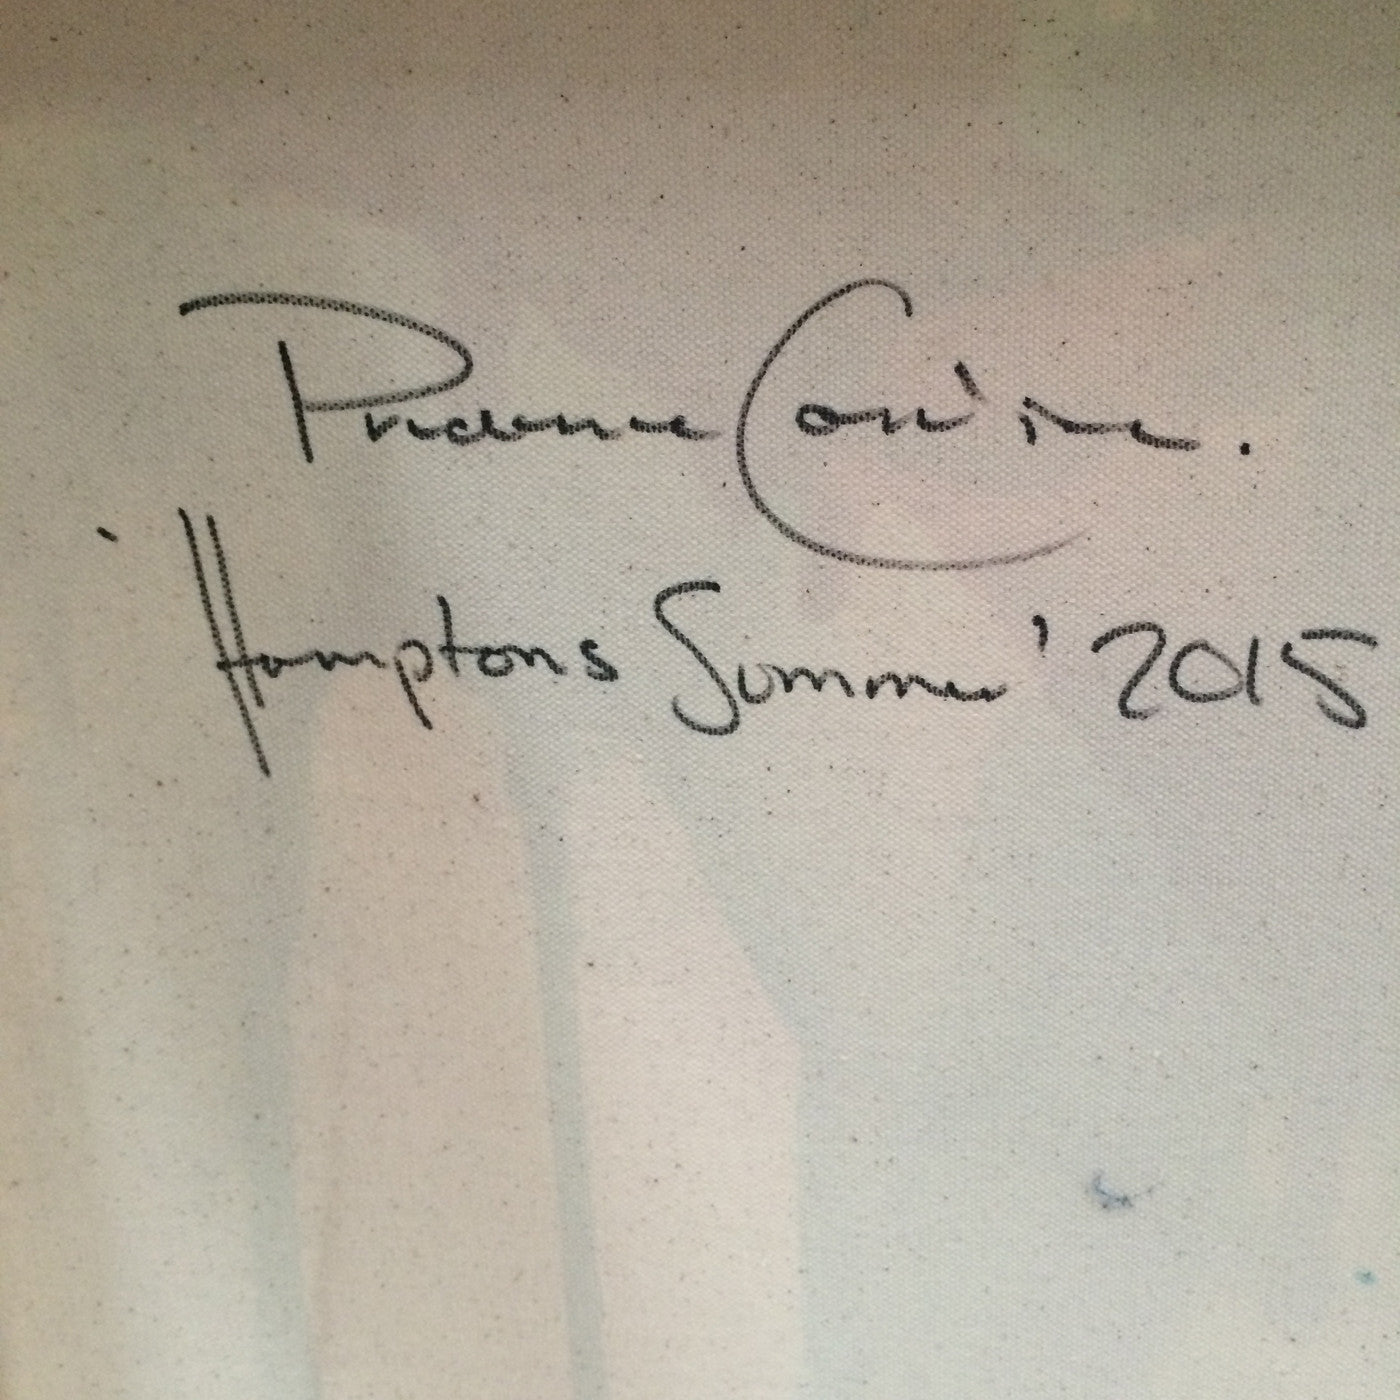 Prudence
'Hamptons Summer' 2015